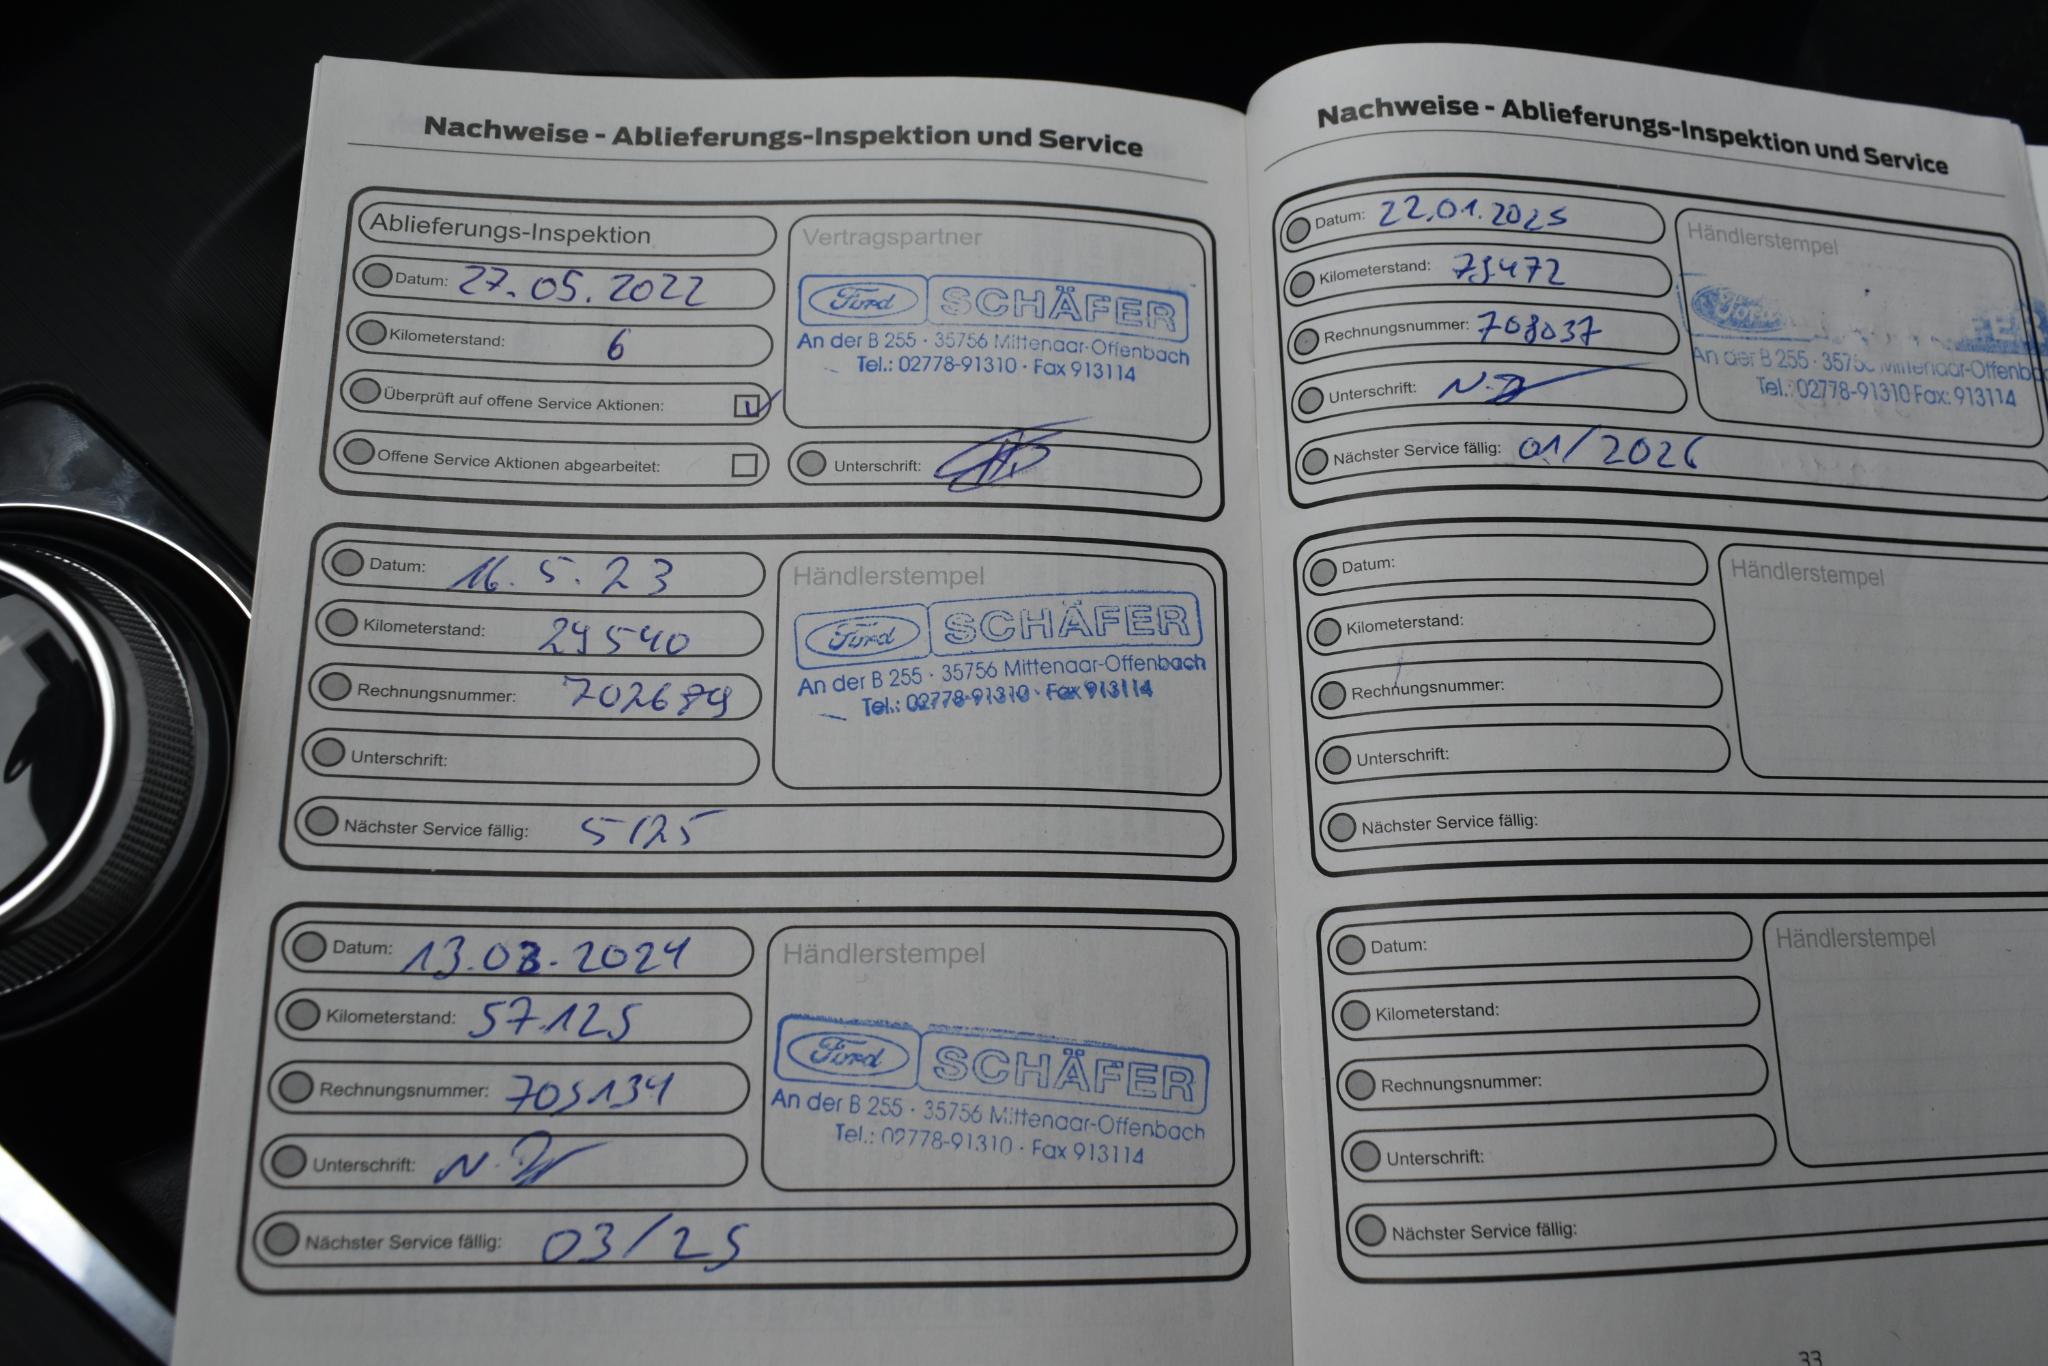 Nachweise - Ablieferungs-Inspektion und Service
Ablieferungs-Inspektion
Datum: 27.05.2022
Kilometerstand: 6
Überprüft auf offene Service Aktionen:
Offene Service Aktionen abgearbeitet:
Vertragspartner
Ford SCHÄFER
An der B 255 · 35756 Mittenaar-Offenbach
Tel.: 02778-91310 · Fax 913114
Unterschrift:
Datum: 16.5.23
Kilometerstand: 29540
Rechnungsnummer: 702679
Unterschrift:
Nächster Service fällig: 5/25
Händlerstempel
Ford SCHÄFER
An der B 255 · 35756 Mittenaar-Offenbach
Tel.: 02778-91310 · Fax 913114
Datum: 13.03.2024
Kilometerstand: 57.125
Rechnungsnummer: 705134
Unterschrift:
Nächster Service fällig: 03/25
Händlerstempel
Ford SCHÄFER
An der B 255 · 35756 Mittenaar-Offenbach
Tel.: 02778-91310 · Fax 913114
Nachweise - Ablieferungs-Inspektion und Service
Datum: 22.01.2025
Kilometerstand: 79472
Rechnungsnummer: 708037
Unterschrift:
Nächster Service fällig: 01/2026
Händlerstempel
Ford
An der B 255 · 3575 Mittenaar-Offenb
Tel.: 02778-91310 Fax: 913114
Datum:
Kilometerstand:
Rechnungsnummer:
Unterschrift:
Nächster Service fällig:
Händlerstempel
Datum:
Kilometerstand:
Rechnungsnummer:
Unterschrift:
Nächster Service fällig:
Händlerstempel
33